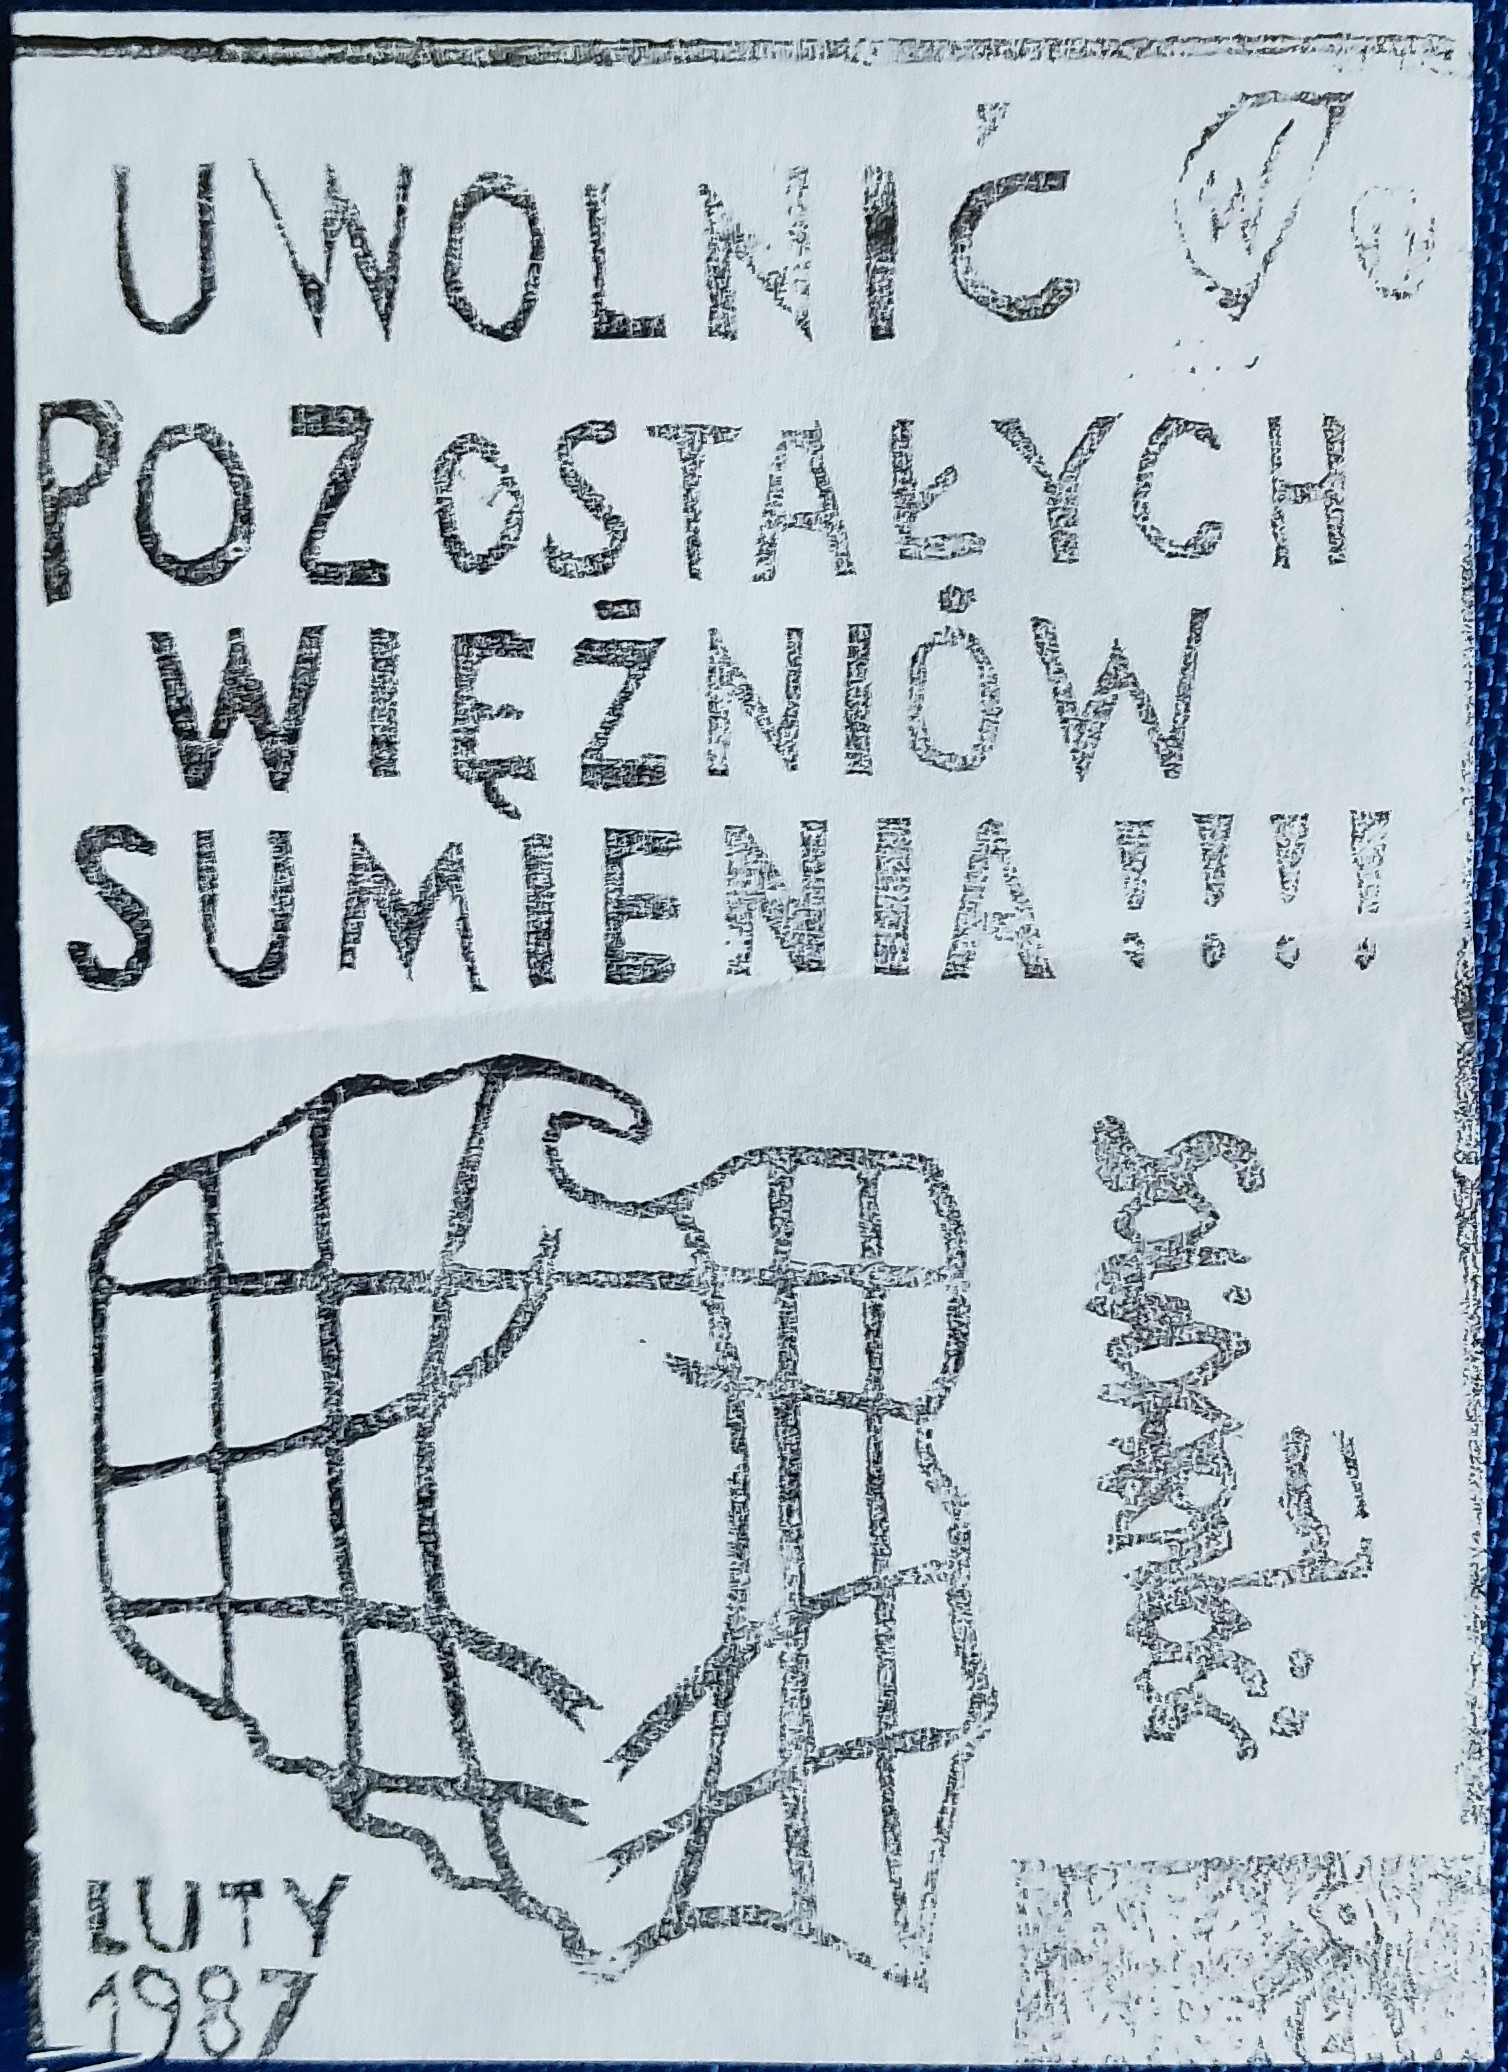 UWOLNIĆ
POZOSTAŁYCH
WIĘŹNIÓW
SUMIENIA!!!!
SOLIDARNOŚĆ
LUTY
1987